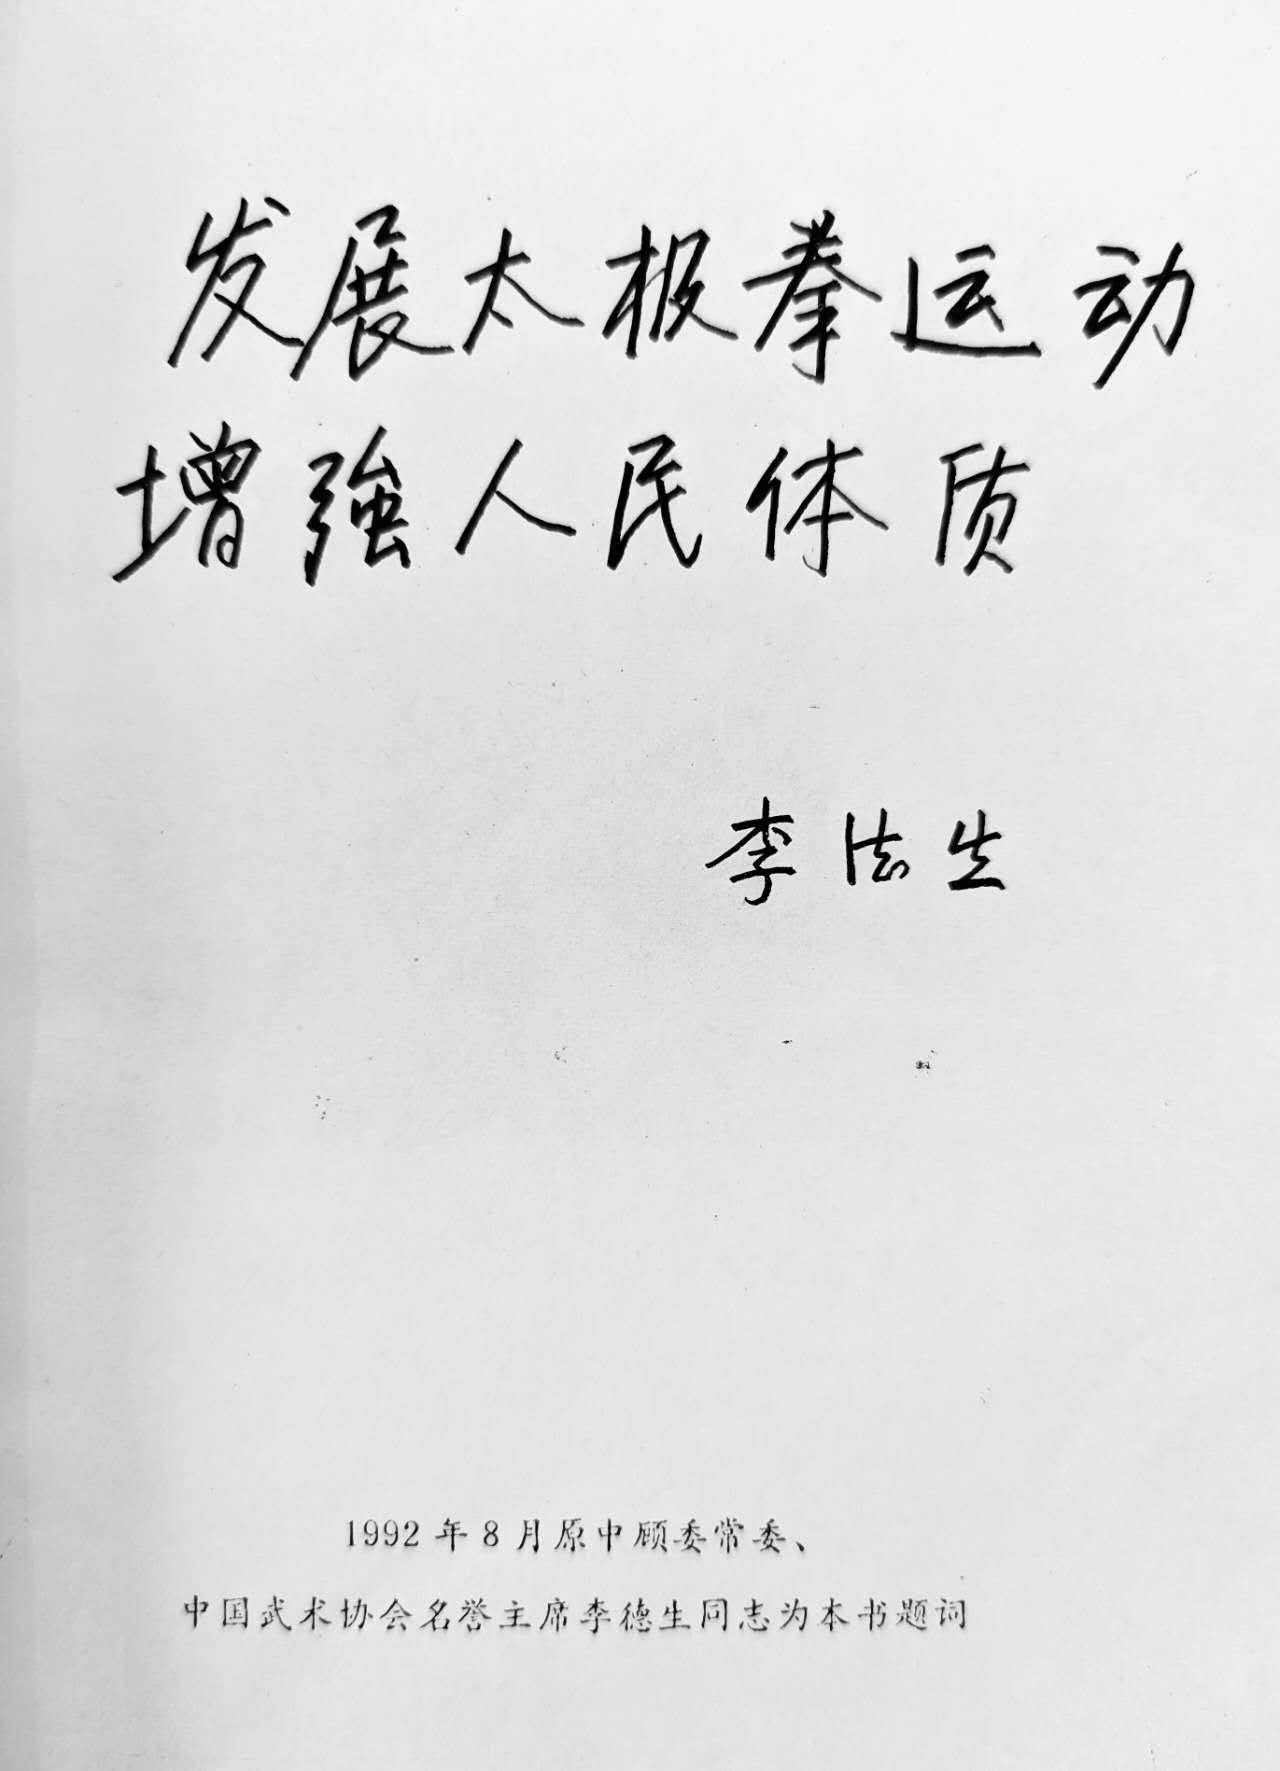 发展太极拳运动
增強人民体质
李德生
1992年8月原中顾委常委、
中国武术协会名誉主席李德生同志为本书题词